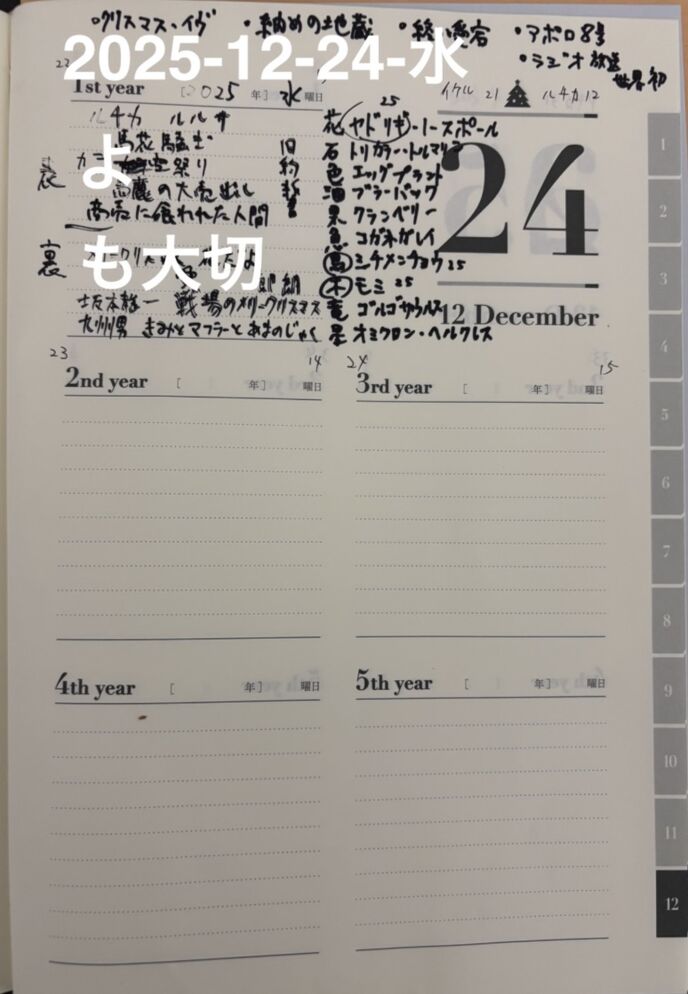 ・クリスマス・イヴ ・納めの地蔵 ・終い愛宕 ・アポロ8号
・ラジオ放送 世界初
2025-12-24-水
よ
も大切
1st year [2025 年] 水 曜日
イケル 21 ルチカ 12
ルチカ ルルサ
馬花騒ぎ
祭り
の大売出し
商売に食われた人間
表
裏
旧約聖書
坂本龍一 戦場のメリークリスマス
九州男 きみとマフラーとあまのじゃく
25
花 ヤドリギ・イースポール
石 トリカラー・トルマリン
色 エッグプラント
酒 ブラーバッグ
果 クランベリー
魚 コガネガレイ
鳥 シチメンチョウ 25
木 モミ 25
竜 ゴルゴサウルス
星 オミクロン・ヘルクレス
24
12 December
23
14
24
15
2nd year [ 年] 曜日
3rd year [ 年] 曜日
4th year [ 年] 曜日
5th year [ 年] 曜日
1
2
3
4
5
6
7
8
9
10
11
12